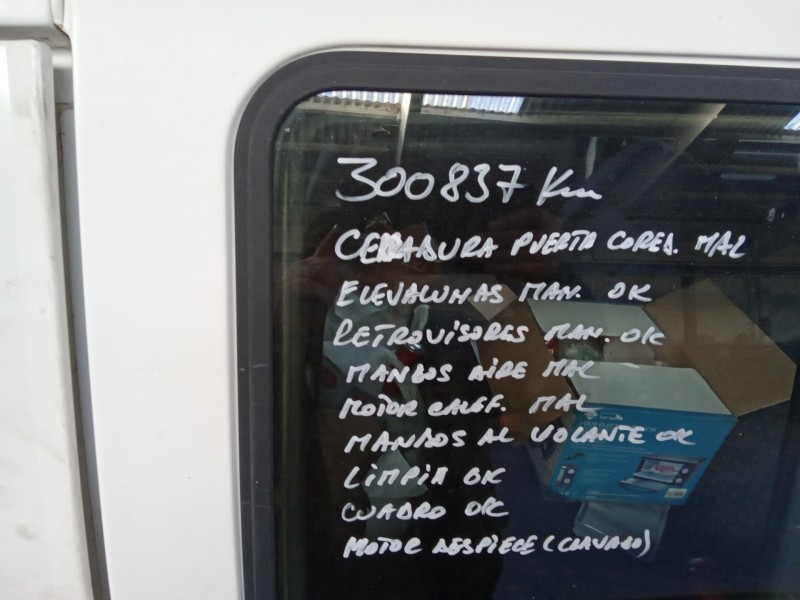 300837 Km
CERRADURA PUERTA CORED. MAL
ELEVALUNAS MAN. OK
RETROVISORES MAN. OK
MANDOS AIRE MAL
MOTOR CALEF. MAL
MANDOS AL VOLANTE OK
LIMPIA OK
CUADRO OK
MOTOR DESPIECE (CLAVADO)